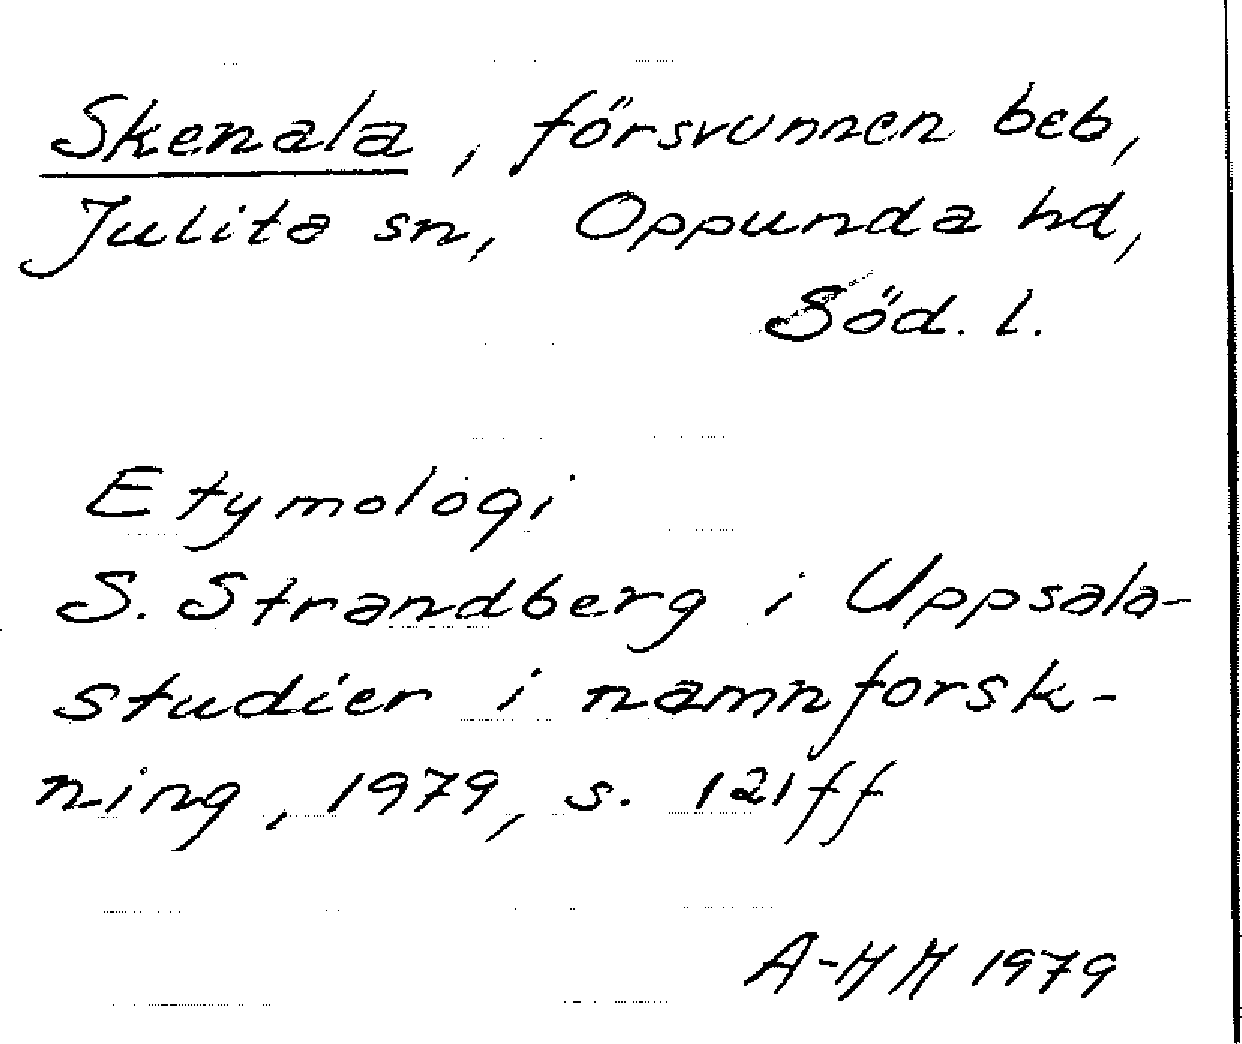 Skenala, försvunnen beb,
Julita sn, Oppunda hd,
Söd. l.
Etymologi
S. Strandberg i Uppsala-
studier i namnforsk-
ning, 1979, s. 121ff
A-HH 1979